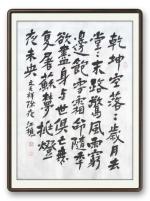 乾坤空落々歲月去
堂々末路驚風雨窮
邊飽雪霜命隨年
欲盡身與世俱忘無
復屠蘇夢挑燈
夜未央 文天祥除夜